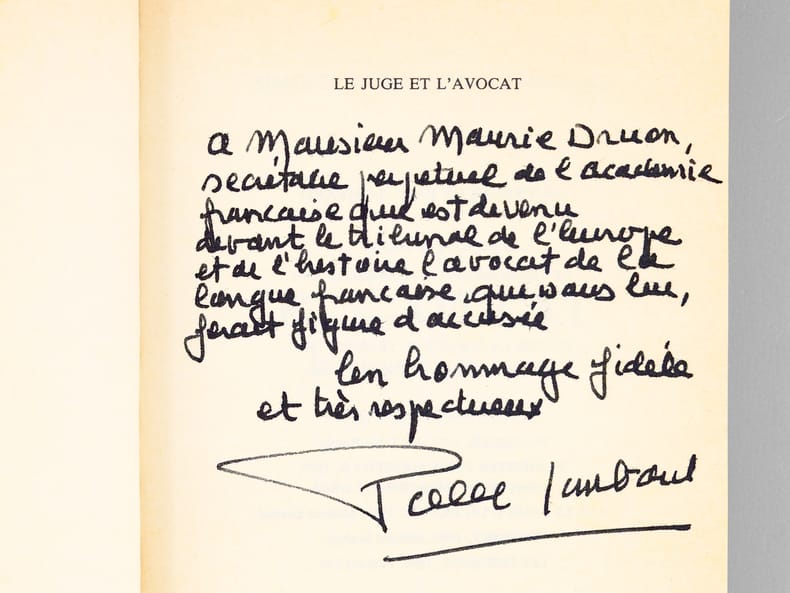 LE JUGE ET L'AVOCAT
a Monsieur Maurice Druon,
secrétaire perpetuel de l'académie
française qui est devenu
devant le tribunal de l'Europe
et de l'histoire l'avocat de la
langue française, qui sans lui,
ferait figure d'accusée
en hommage fidèle
et très respectueux